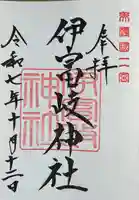 奉拝
伊冨岐神社
令和七年十月十二日